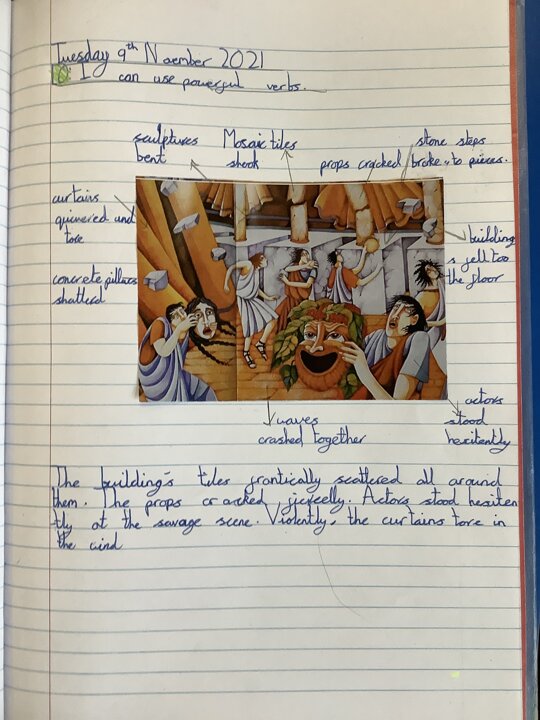 Tuesday 9th November 2021
I can use powerful verbs.
sculptures bent
Mosaic tiles shook
props cracked
stone steps broke to pieces.
curtains quivered and tore
concrete pillars shatterd
buildings fell too the floor
actors stood hesitently
waves crashed together
The building's tiles frantically scattered all around
them. The props cracked fiercelly. Actors stood hesiten
tly at the savage scene. Violently, the curtains tore in
the wind